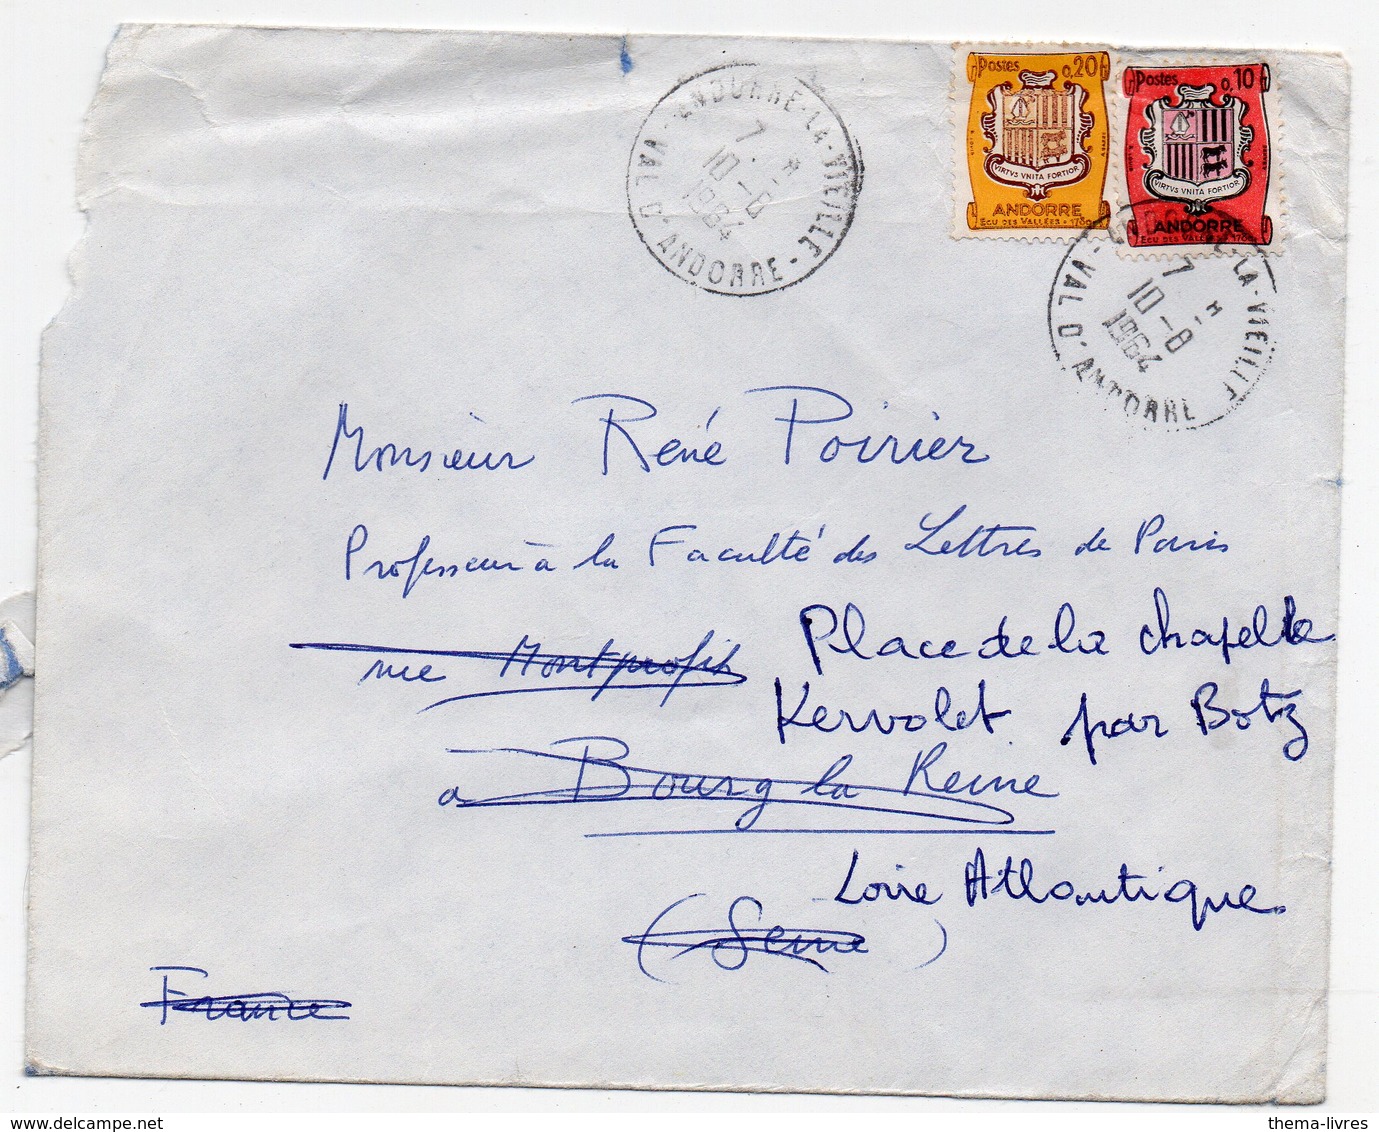 ANDORRE-LA-VIEILLE
7 H
10-8
1964
VAL D'ANDORRE
Postes 0,20
VIRTVS VNITA FORTIOR
ANDORRE
ECU DES VALLÉES - 1780
Postes 0,10
VIRTVS VNITA FORTIOR
ANDORRE
ECU DES VALLÉES - 1780
LA-VIEILLE
7 H
10-8
1964
VAL D'ANDORRE
Monsieur René Poirier
Professeur à la Faculté des Lettres de Paris
rue Montprofit Place de la chapelle
Kervolet par Botz
a Bourg la Reine
Loire Atlantique
(Seine)
France
thema-livres